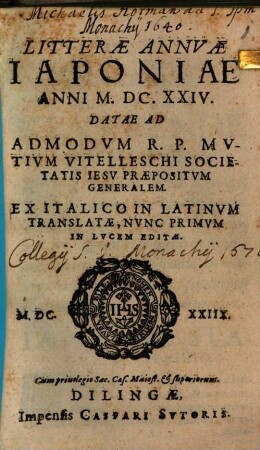 Michaelis
Monachij 1640.
LITTERÆ ANNVÆ
IAPONIAE
ANNI M. DC. XXIV.
DATAE AD
ADMODVM R. P. MV-
TIVM VITELLESCHI SOCIE-
TATIS IESV PRÆPOSITVM
GENERALEM.
EX ITALICO IN LATINVM
TRANSLATÆ, NVNC PRIMVM
IN LVCEM EDITÆ.
Collegij S. J. Monachij
IHS
M. DC. XXIIX.
Cum priuilegio Sac. Cæs. Maiest. & superiorum.
DILINGÆ,
Impensis CASPARI SVTORIS.